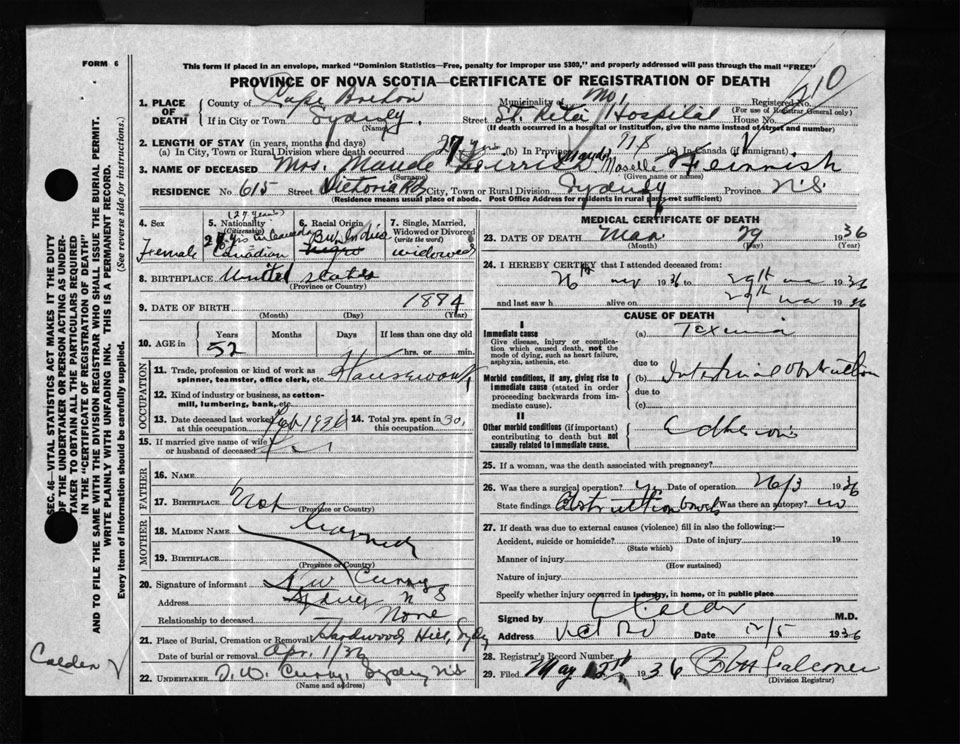 FORM 6
This form if placed in an envelope, marked "Dominion Statistics—Free, penalty for improper use $300," and properly addressed will pass through the mail "FREE"
PROVINCE OF NOVA SCOTIA—CERTIFICATE OF REGISTRATION OF DEATH
1. PLACE OF DEATH County of Cape Breton Municipality of Registered No. 210
(For use of Registrar General only)
If in City or Town Sydney. Street St. Rita Hospital House No.
(Name) (If death occurred in a hospital or institution, give the name instead of street and number)
2. LENGTH OF STAY (in years, months and days)
(a) In City, Town or Rural Division where death occurred 27 yrs (b) In Province (c) In Canada (if immigrant)
3. NAME OF DECEASED Mrs. Maude Maselle Feinnish
(Surname) (Given name or names)
RESIDENCE No. 615 Street Victoria Rd City, Town or Rural Division Sydney Province N.S.
(Residence means usual place of abode. Post Office Address for residents in rural parts not sufficient)
4. Sex Female
5. Nationality (Citizenship) (27 years) in Canada Canadian
6. Racial Origin Negro
7. Single, Married, Widowed or Divorced (write the word) widowed
8. BIRTHPLACE United States
(Province or Country)
9. DATE OF BIRTH 1884
(Month) (Day) (Year)
10. AGE in Years Months Days If less than one day old
52 hrs. or min.
OCCUPATION
11. Trade, profession or kind of work as spinner, teamster, office clerk, etc. Housework
12. Kind of industry or business, as cotton-mill, lumbering, bank, etc.
13. Date deceased last worked at this occupation Feb 1936 14. Total yrs. spent in this occupation 30
15. If married give name of wife or husband of deceased
FATHER
16. NAME
17. BIRTHPLACE Not
(Province or Country)
MOTHER
18. MAIDEN NAME
19. BIRTHPLACE
(Province or Country)
20. Signature of informant D W Curry
Address Sydney N S
Relationship to deceased None
21. Place of Burial, Cremation or Removal Hardwood Hill, Sydney
Date of burial or removal Apr. 1/36
22. UNDERTAKER D. W. Curry, Sydney N.S.
(Name and address)
MEDICAL CERTIFICATE OF DEATH
23. DATE OF DEATH Mar 29 1936
(Month) (Day) (Year)
24. I HEREBY CERTIFY that I attended deceased from:
26th mar 1936 to 29th mar 1936
and last saw h alive on 29th mar 1936
CAUSE OF DEATH
I
Immediate cause (a) Toxemia
Give disease, injury or complication which caused death, not the mode of dying, such as heart failure, asphyxia, asthenia, etc.
due to
Morbid conditions, if any, giving rise to immediate cause (stated in order proceeding backwards from immediate cause). (b) Intestinal obstruction
due to
(c)
II
Other morbid conditions (if important) contributing to death but not causally related to immediate cause. Adhesions
25. If a woman, was the death associated with pregnancy?
26. Was there a surgical operation? Yes Date of operation 26/3 1936
State findings Obstruction bowels Was there an autopsy? no
27. If death was due to external causes (violence) fill in also the following:—
Accident, suicide or homicide? Date of injury 19
(State which)
Manner of injury
(How sustained)
Nature of injury
Specify whether injury occurred in industry, in home, or in public place
Signed by Calder M.D.
Address Vict Rd Date 12/5 1936
28. Registrar's Record Number
29. Filed May 12th 1936 Falconer
(Division Registrar)
SEC. 46—VITAL STATISTICS ACT MAKES IT THE DUTY
OF THE UNDERTAKER OR PERSON ACTING AS UNDER-
TAKER TO OBTAIN ALL THE PARTICULARS REQUIRED
IN THE "CERTIFICATE OF REGISTRATION OF DEATH"
AND TO FILE THE SAME WITH THE DIVISION REGISTRAR WHO SHALL ISSUE THE BURIAL PERMIT.
WRITE PLAINLY WITH UNFADING INK. THIS IS A PERMANENT RECORD.
Every item of information should be carefully supplied. (See reverse side for instructions.)
Calder